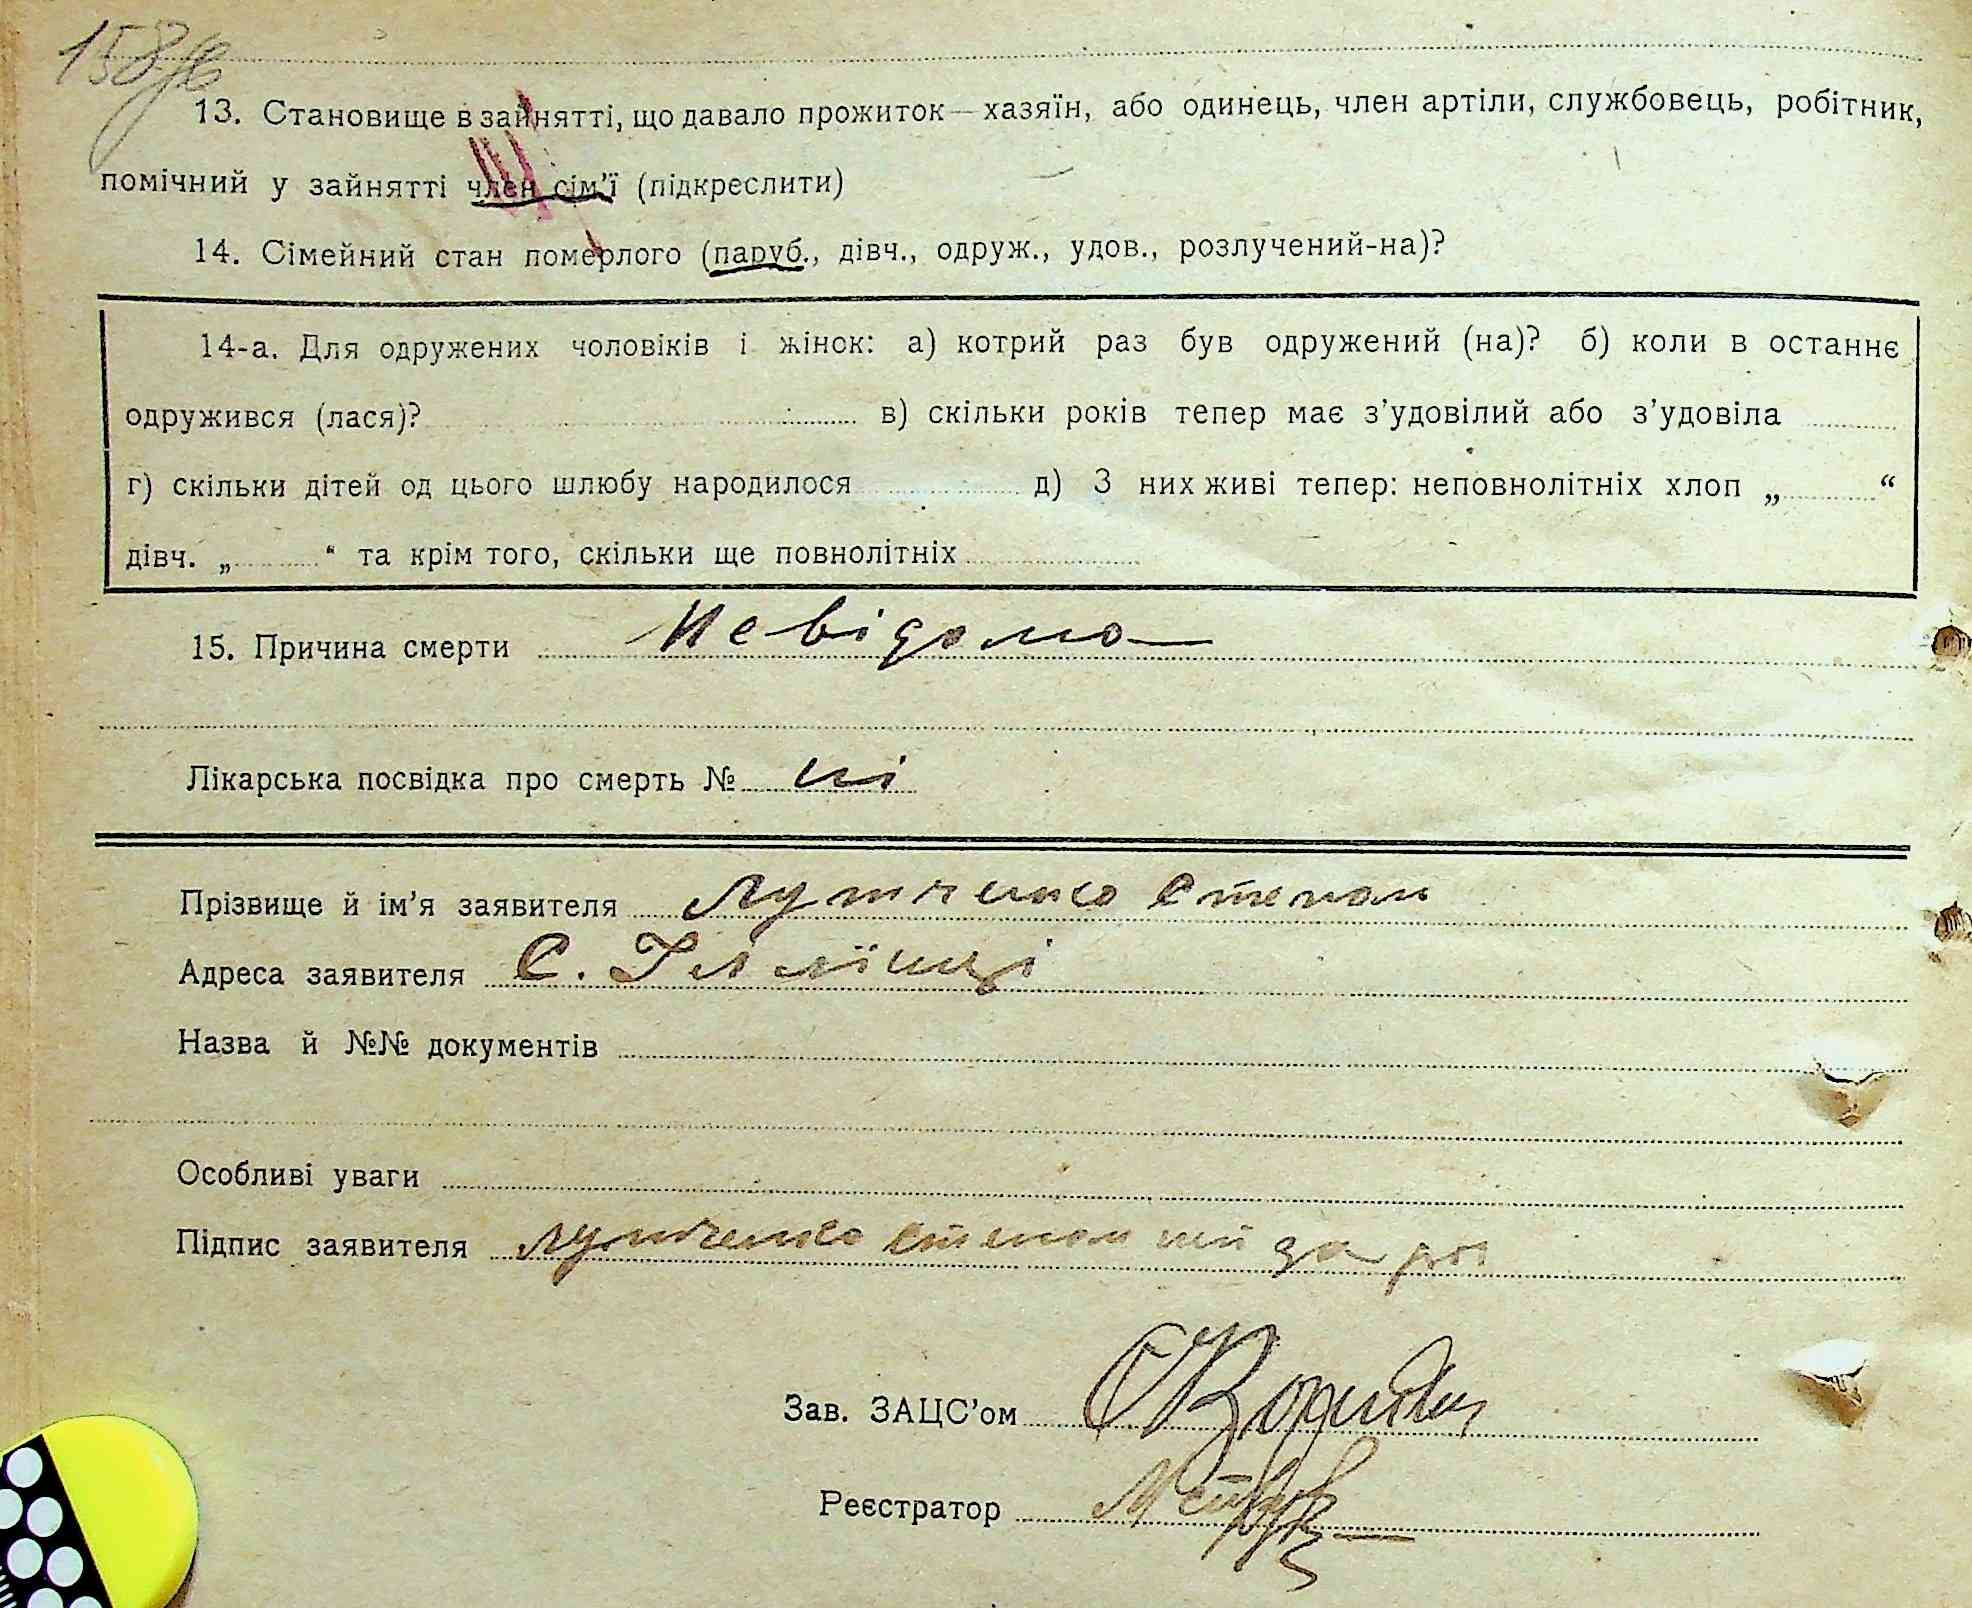 13. Становище в зайнятті, що давало прожиток — хазяїн, або одинець, член артіли, службовець, робітник,
помічний у зайнятті член сім’ї (підкреслити)
14. Сімейний стан померлого (паруб., дівч., одруж., удов., розлучений-на)?
14-а. Для одружених чоловіків і жінок: а) котрий раз був одружений (на)? б) коли в останнє
одружився (лася)? в) скільки років тепер має з’удовілий або з’удовіла
г) скільки дітей од цього шлюбу народилося д) З них живі тепер: неповнолітніх хлоп „ “
дівч. „ “ та крім того, скільки ще повнолітніх
15. Причина смерти Невідомо
Лікарська посвідка про смерть № ні
Прізвище й ім’я заявителя Лутченко Степан
Адреса заявителя С. Іллінці
Назва й №№ документів
Особливі уваги
Підпис заявителя Лутченко Степан
Зав. ЗАЦС’ом
Реєстратор